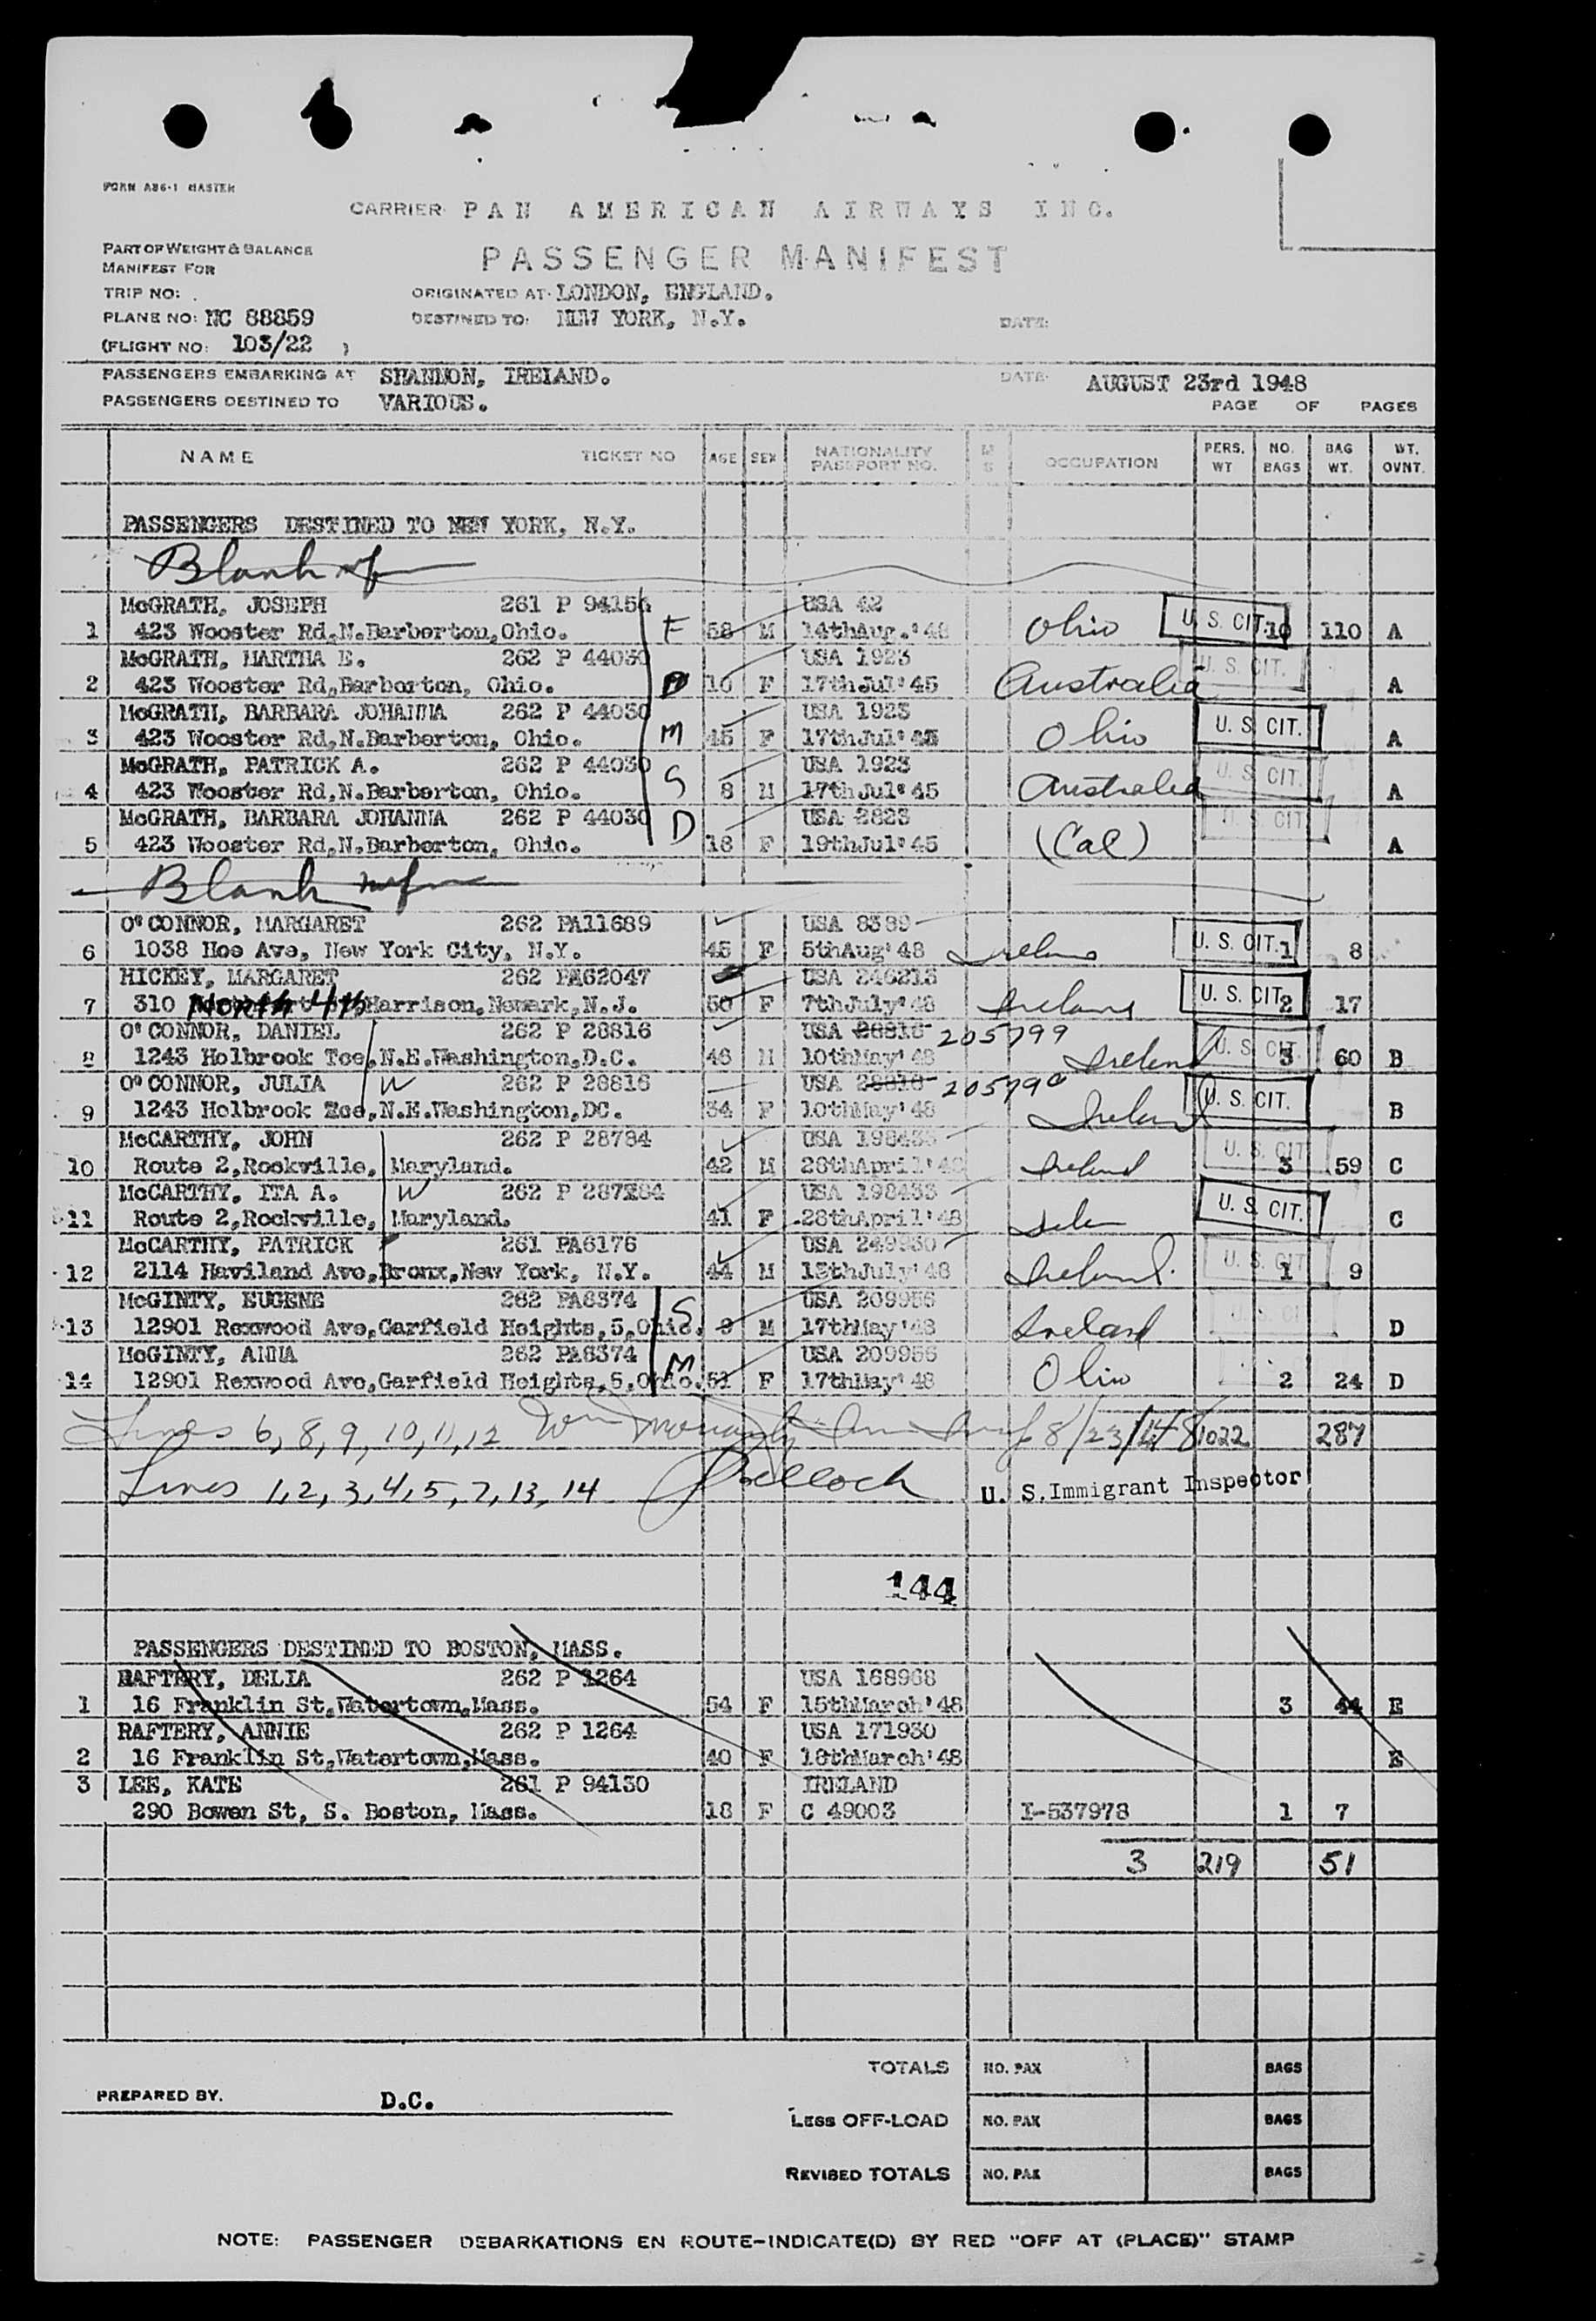 FORM A86-1 MASTER
CARRIER PAN AMERICAN AIRWAYS INC.
PART OF WEIGHT & BALANCE
MANIFEST FOR
PASSENGER MANIFEST
TRIP NO:
ORIGINATED AT LONDON, ENGLAND.
PLANE NO: NC 88859
DESTINED TO: NEW YORK, N.Y.
DATE:
(FLIGHT NO: 103/22 )
PASSENGERS EMBARKING AT SHANNON, IRELAND.
DATE AUGUST 23rd 1948
PASSENGERS DESTINED TO VARIOUS.
PAGE OF PAGES
NAME TICKET NO AGE SEX NATIONALITY PASSPORT NO. M S OCCUPATION PERS. WT NO. BAGS BAG WT. WT. OVNT.
PASSENGERS DESTINED TO NEW YORK, N.Y.
Blank
McGRATH, JOSEPH 261 P 94156 USA 42
1 423 Wooster Rd,N.Barberton,Ohio. F 58 M 14thAug.'48 Ohio U. S. CIT. 10 110 A
McGRATH, MARTHA E. 262 P 44030 USA 1923
2 423 Wooster Rd,Barberton, Ohio. D 16 F 17thJul'45 Australia U. S. CIT. A
McGRATH, BARBARA JOHANNA 262 P 44030 USA 1923
3 423 Wooster Rd,N.Barberton, Ohio. M 45 F 17thJul'45 Ohio U. S. CIT. A
McGRATH, PATRICK A. 262 P 44030 USA 1923
4 423 Wooster Rd,N.Barberton, Ohio. S 8 M 17thJul'45 Australia U. S. CIT. A
McGRATH, BARBARA JOHANNA 262 P 44030 USA 2823
5 423 Wooster Rd,N.Barberton, Ohio. D 18 F 19thJul'45 (Cal) U. S. CIT A
Blank
O'CONNOR, MARGARET 262 PA11689 USA 8389
6 1038 Hoe Ave, New York City, N.Y. 45 F 5thAug'48 Ireland U. S. CIT. 1 8
HICKEY, MARGARET 262 PA62047 USA 246213
7 310 North 4th,Harrison,Newark,N.J. 50 F 7thJuly'48 Ireland U. S. CIT. 2 17
O'CONNOR, DANIEL 262 P 28816 USA 28816 205799
8 1243 Holbrook Tce,N.E.Washington,D.C. 46 M 10thMay'48 Ireland U. S. CIT. 3 60 B
O'CONNOR, JULIA W 262 P 28816 USA 28816 205790
9 1243 Holbrook Tce,N.E.Washington,DC. 34 F 10thMay'48 Ireland U. S. CIT. B
McCARTHY, JOHN 262 P 28784 USA 198433
10 Route 2,Rockville, Maryland. 42 M 28thApril'48 Ireland U. S. CIT 3 59 C
McCARTHY, ITA A. W 262 P 287884 USA 198433
11 Route 2,Rockville, Maryland. 41 F 28thApril'48 U. S. CIT. C
McCARTHY, PATRICK 261 PA6176 USA 249930
12 2114 Haviland Ave,Bronx,New York, N.Y. 44 M 15thJuly'48 Ireland. U. S. CIT 1 9
McGINTY, EUGENE 262 PA8374 S USA 209956
13 12901 Rexwood Ave,Garfield Heights,5,Ohio. 9 M 17thMay'48 Ireland U. S. CI D
McGINTY, ANNA 262 PA8374 M USA 209956
14 12901 Rexwood Ave,Garfield Heights,5,Ohio. 51 F 17thMay'48 Ohio 2 24 D
Lines 6, 8, 9, 10, 11, 12 8/23/48 1022 287
Lines 1, 2, 3, 4, 5, 7, 13, 14 U. S.Immigrant Inspector
144
PASSENGERS DESTINED TO BOSTON, MASS.
RAFTERY, DELIA 262 P 1264 USA 168968
1 16 Franklin St,Watertown,Mass. 54 F 15thMarch'48 3 44 E
RAFTERY, ANNIE 262 P 1264 USA 171930
2 16 Franklin St,Watertown,Mass. 40 F 18thMarch'48 E
3 LEE, KATE 261 P 94130 IRELAND
290 Bowen St, S. Boston, Mass. 18 F C 49003 I-537978 1 7
3 219 51
TOTALS NO. PAX BAGS
PREPARED BY. D.C.
LESS OFF-LOAD NO. PAX BAGS
REVISED TOTALS NO. PAX BAGS
NOTE: PASSENGER DEBARKATIONS EN ROUTE-INDICATE(D) BY RED "OFF AT (PLACE)" STAMP